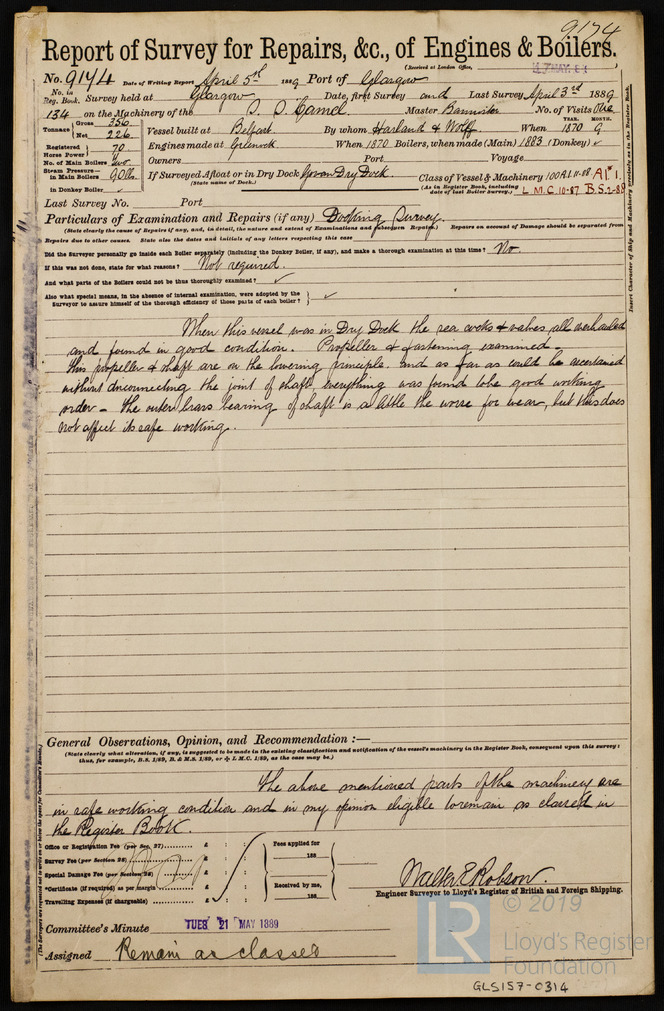 9174
Report of Survey for Repairs, &c., of Engines & Boilers.
(Received at London Office,
No. 9174 Date of Writing Report April 5th 1889 Port of Glasgow
No. in Reg. Book. Survey held at Glasgow Date, first Survey and Last Survey April 3rd 1889
134 on the Machinery of the S. S. Camel Master Bannister No. of Visits One
Tonnage Gross 356 Net 226
Vessel built at Belfast By whom Harland & Wolff When YEAR. 1870 MONTH. 9
Registered Horse Power 70 Engines made at Greenock When 1870 Boilers, when made (Main) 1883 (Donkey) ✓
No. of Main Boilers Two Owners Port Voyage
Steam Pressure in Main Boilers 90 lbs. If Surveyed Afloat or in Dry Dock Govan Dry Dock. Class of Vessel & Machinery 100A1.11-88 A1* 1
(State name of Dock.) (As in Register Book, including date of last Boiler Survey.) L.M.C. 10-87 B.S. 2-88
in Donkey Boiler ✓
Last Survey No. Port
Particulars of Examination and Repairs (if any) Docking Survey.
(State clearly the cause of Repairs if any, and, in detail, the nature and extent of Examinations and subsequent Repairs.) Repairs on account of Damage should be separated from
Repairs due to other causes. State also the dates and initials of any letters respecting this case
Did the Surveyor personally go inside each Boiler separately (including the Donkey Boiler, if any), and make a thorough examination at this time? No.
If this was not done, state for what reasons? Not required.
And what parts of the Boilers could not be thus thoroughly examined? ✓
Also what special means, in the absence of internal examination, were adopted by the
Surveyor to assure himself of the thorough efficiency of those parts of each boiler? ✓
When this vessel was in Dry Dock the sea cocks & valves, all overhauled
and found in good condition. Propeller & fastening examined.
this propeller & shaft are on the lowering principle. and as far as could be ascertained
without disconnecting the joint of shaft everything was found to be good working
order – the outer brass bearing of shaft is a little the worse for wear, but this does
not affect its safe working.
General Observations, Opinion, and Recommendation :—
(State clearly what alteration, if any, is suggested to be made in the existing classification and notification of the vessel's machinery in the Register Book, consequent upon this survey:
thus, for example, B.S. 1/89, B. & M.S. 1/89, or ✠ L.M.C. 1/89, as the case may be.)
The above mentioned parts of the machinery are
in safe working condition and in my opinion eligible to remain as classed in
the Register Book.
Office or Registration Fee (per Sec. 27) £ : : Fees applied for
Survey Fee (per Section 28) £ : : 188
Special Damage Fee (per Section 28) £ : :
*Certificate (if required) as per margin £ : : Received by me,
Travelling Expenses (if chargeable) £ : : 188
Walter E Robson
Engineer Surveyor to Lloyd's Register of British and Foreign Shipping.
Committee's Minute TUES 21 MAY 1889
Assigned Remain as classed
LR
© 2019
Lloyd's Register
Foundation
GLS157-0314